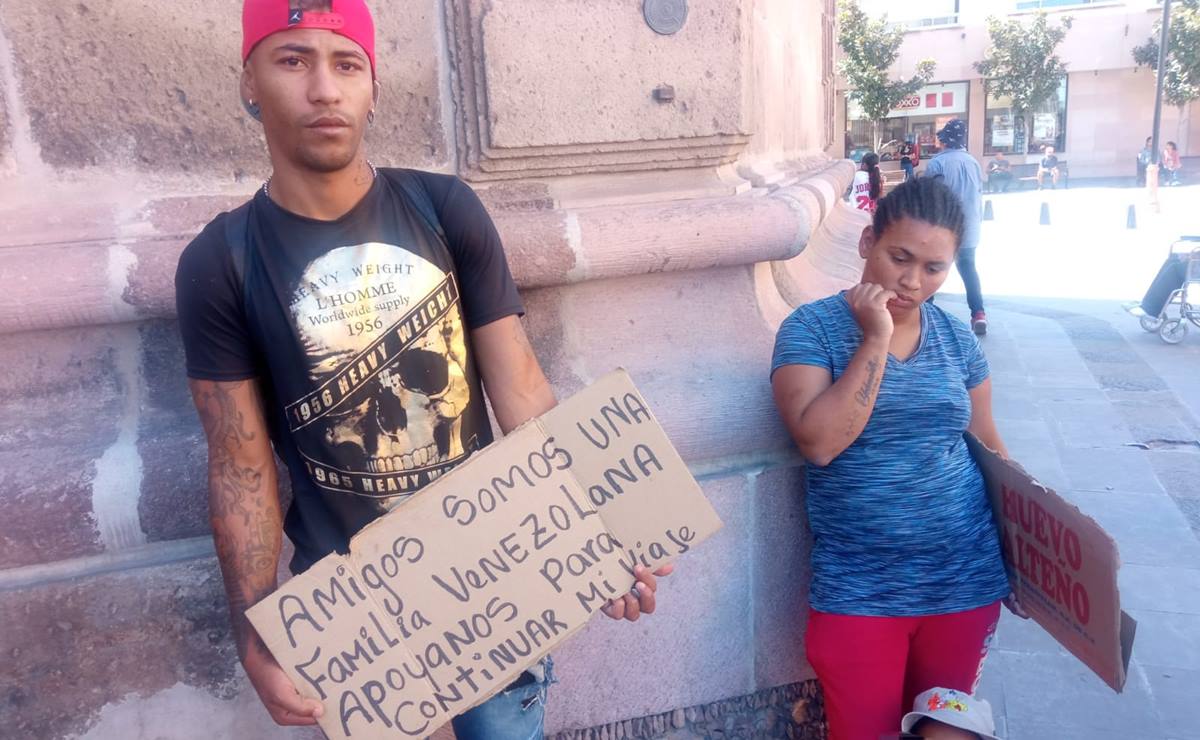 HEAVY WEIGHT
L'HOMME
Worldwide supply
1956
1956 HEAVY WEIGHT
1965 HEAVY WE
AMIGOS SOMOS UNA
FamiLia VeNEZOLana
APOyaNOS Para
CONTiNUAR Mi Viase
HUEVO
ALTEÑO
OXXO
JOR